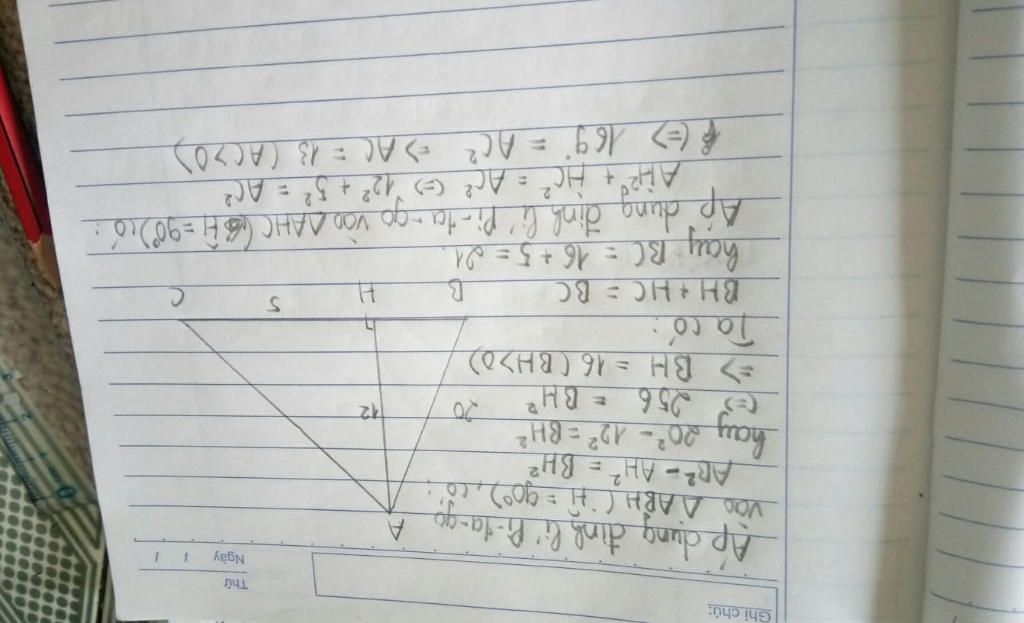 Ghi chú:
Thứ
Ngày / /
Áp dụng định lí Pi-ta-go
vào ΔABH (Ĥ = 90°), có:
AB² - AH² = BH²
hay 20² - 12² = BH²
(=> 256 = BH²
=> BH = 16 (BH>0)
Ta có:
BH + HC = BC
hay BC = 16 + 5 = 21.
Áp dụng định lí Pi-ta-go vào ΔAHC (Ĥ = 90°) có:
AH² + HC² = AC² (=> 12² + 5² = AC²
(=> 169 = AC² => AC = 13 (AC>0)
A
20
12
B
H
5
C